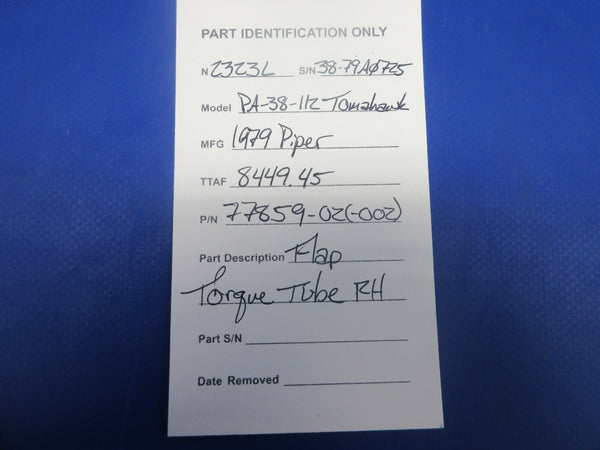 PART IDENTIFICATION ONLY
N 2323L S/N 38-79A0725
Model PA-38-112 Tomahawk
MFG 1979 Piper
TTAF 8449.45
P/N 77859-02(-002)
Part Description Flap
Torque Tube RH
Part S/N
Date Removed